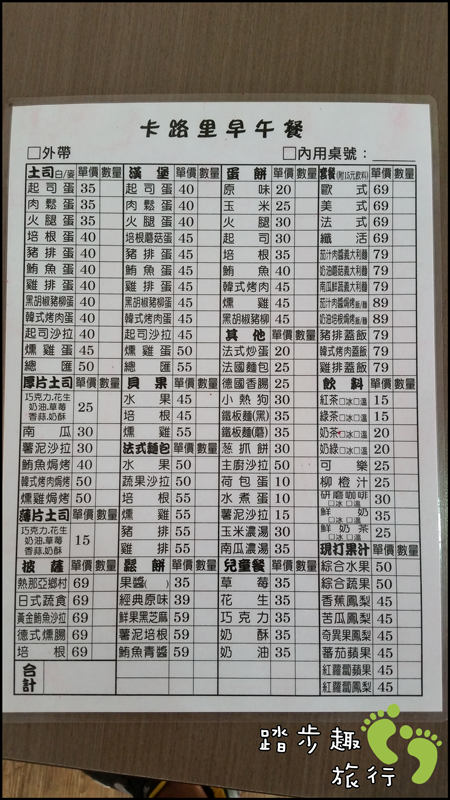 卡路里早午餐
□外帶 □內用桌號：
土司白/麥 單價 數量
起司蛋 35
肉鬆蛋 35
火腿蛋 35
培根蛋 40
豬排蛋 40
鮪魚蛋 40
雞排蛋 40
黑胡椒豬柳蛋 40
韓式烤肉蛋 40
起司沙拉 40
燻雞蛋 45
總匯 50
厚片土司 單價 數量
巧克力.花生
奶油.草莓
香蒜.奶酥
25
南瓜 30
薯泥沙拉 30
鮪魚焗烤 40
韓式烤肉焗烤 50
燻雞焗烤 50
薄片土司 單價 數量
巧克力.花生
奶油.草莓
香蒜.奶酥
15
披薩 單價 數量
熱那亞鄉村 69
日式蔬食 69
黃金鮪魚沙拉 69
德式燻腸 69
培根 69
合計
漢堡 單價 數量
起司蛋 40
肉鬆蛋 40
火腿蛋 40
培根蘑菇蛋 45
豬排蛋 45
鮪魚蛋 45
雞排蛋 45
黑胡椒豬柳蛋 45
韓式烤肉蛋 45
起司沙拉 45
燻雞蛋 50
總匯 55
貝果 單價 數量
水果 45
培根 45
燻雞 55
法式麵包 單價 數量
水果 50
蔬果沙拉 50
培根 55
燻雞 55
豬排 55
雞排 55
鬆餅 單價 數量
果醬( ) 35
經典原味 39
鮮果黑芝麻 59
薯泥培根 59
鮪魚青醬 59
蛋餅 單價 數量
原味 20
玉米 25
火腿 30
起司 30
培根 35
鮪魚 40
韓式烤肉 45
燻雞 45
黑胡椒豬柳 45
其他 單價 數量
法式炒蛋 20
法國麵包 25
德國香腸 25
小熱狗 30
鐵板麵(黑) 35
鐵板麵(蘑) 35
蔥抓餅 30
主廚沙拉 50
荷包蛋 10
水煮蛋 10
薯泥沙拉 15
玉米濃湯 30
南瓜濃湯 35
兒童餐 單價 數量
草莓 35
花生 35
巧克力 35
奶酥 35
奶油 35
套餐(附15元飲料) 單價 數量
歐式 69
美式 69
法式 69
纖活 69
茄汁肉醬義大利麵 79
奶油蘑菇義大利麵 79
南瓜鮮蔬義大利麵 79
茄汁肉醬焗烤飯/麵 89
奶油培根焗烤飯/麵 89
豬排蓋飯 79
韓式烤肉蓋飯 79
雞排蓋飯 79
飲料 單價 數量
紅茶□冰□溫 15
綠茶□冰□溫 15
奶茶□冰□溫 20
奶綠□冰□溫 20
可樂 25
柳橙汁 25
研磨咖啡
□冰 □溫
30
鮮奶
□冰 □溫
35
鮮奶茶
□冰 □溫
25
現打果汁 單價 數量
綜合水果 50
綜合蔬果 50
香蕉鳳梨 45
苦瓜鳳梨 45
奇異果鳳梨 45
蕃茄蘋果 45
紅蘿蔔蘋果 45
紅蘿蔔鳳梨 45
踏步趣
旅行